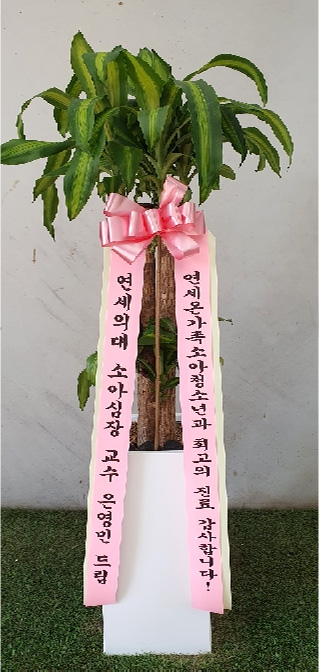 연세의대 소아심장 교수 은영민 드림
연세온가족소아청소년과 최고의 진료 감사합니다!